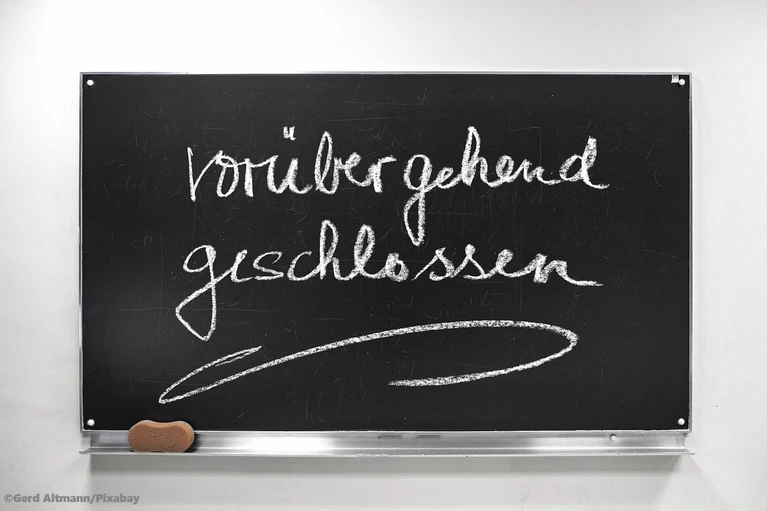 vorübergehend
geschlossen
©Gerd Altmann/Pixabay